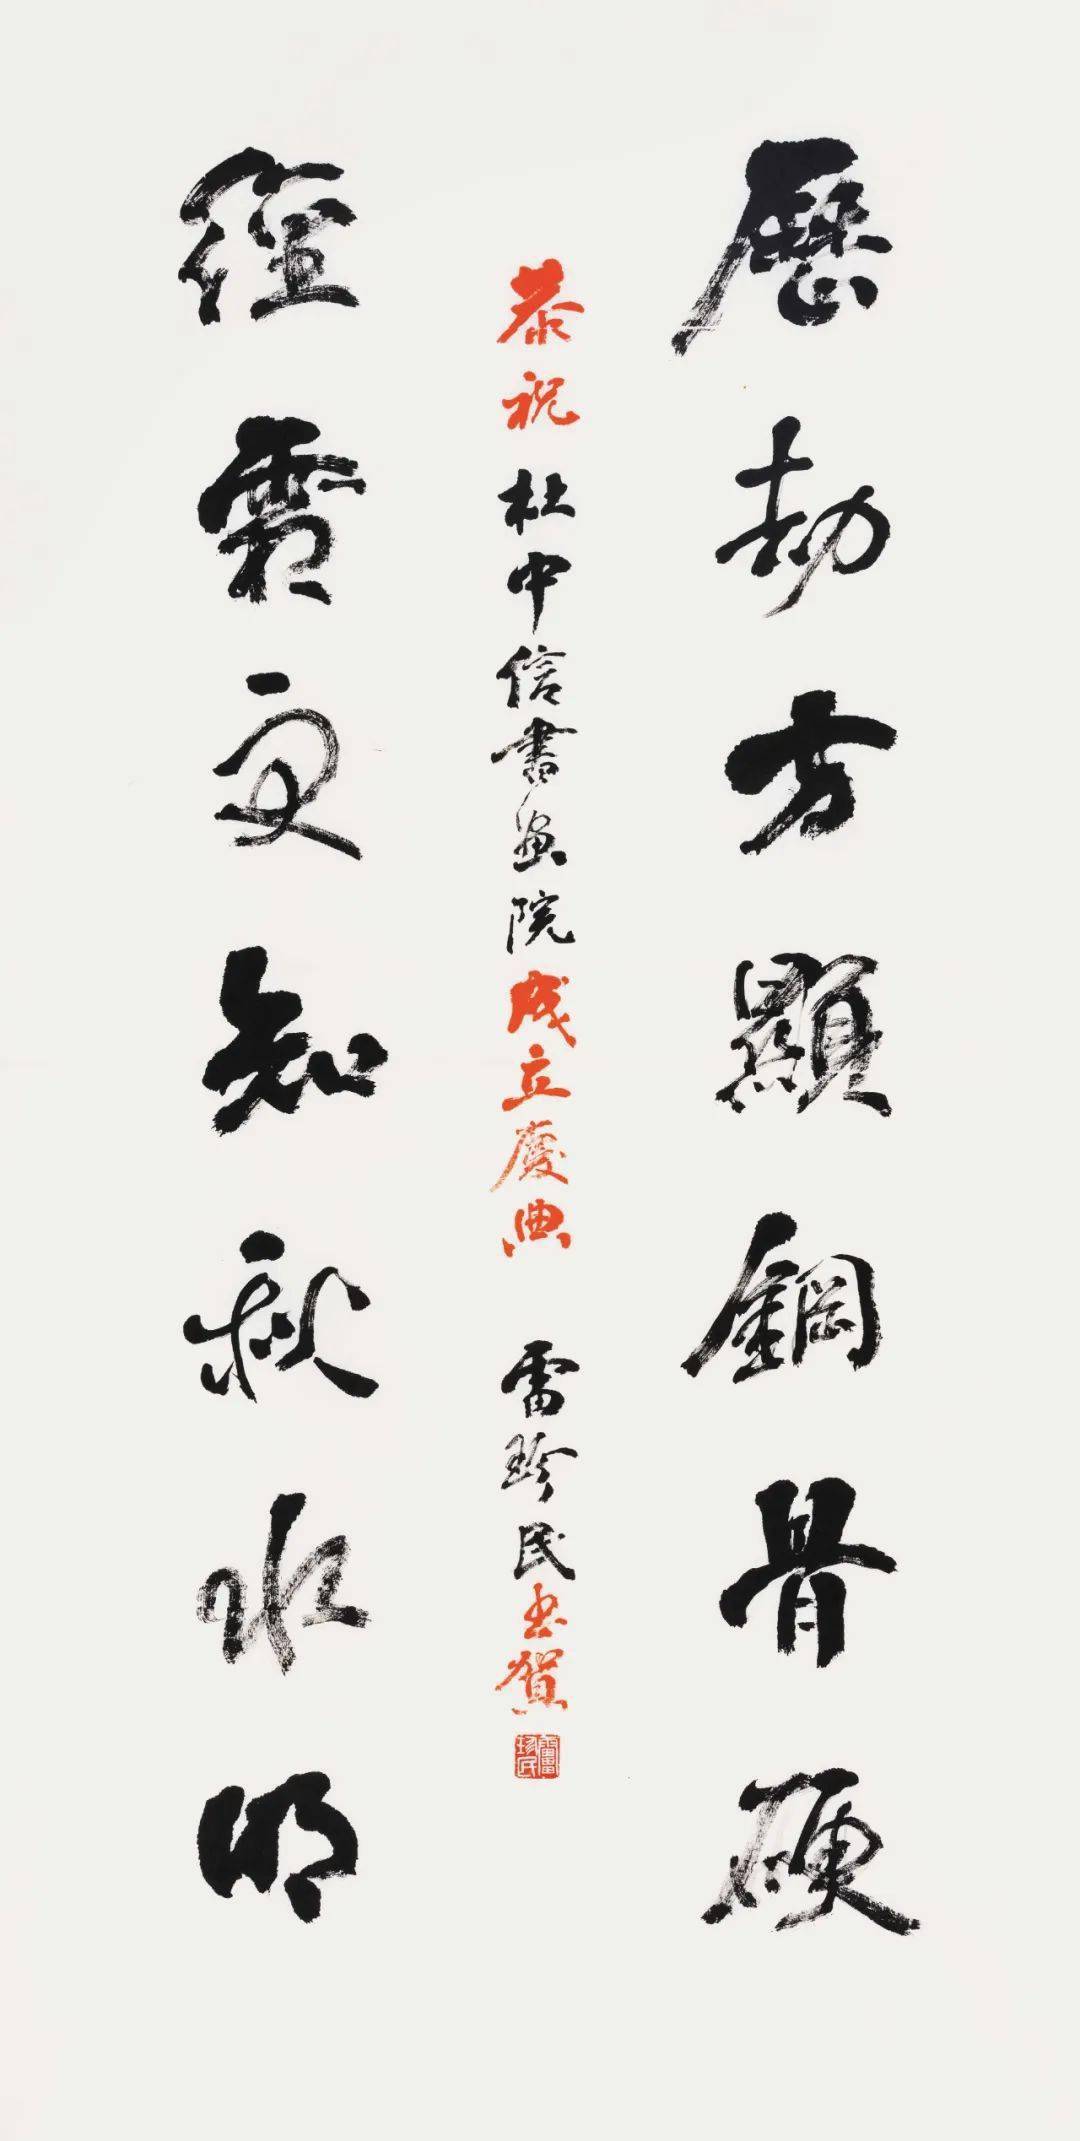 歷劫方顯鋼骨硬
恭祝杜中信書畫院成立慶典 雷珍民書賀
雷珍民
經霜更知秋水明